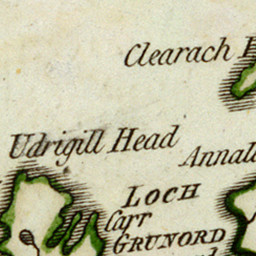 Clearach
Udrigill Head
LOCH
Carr
GRUNORD